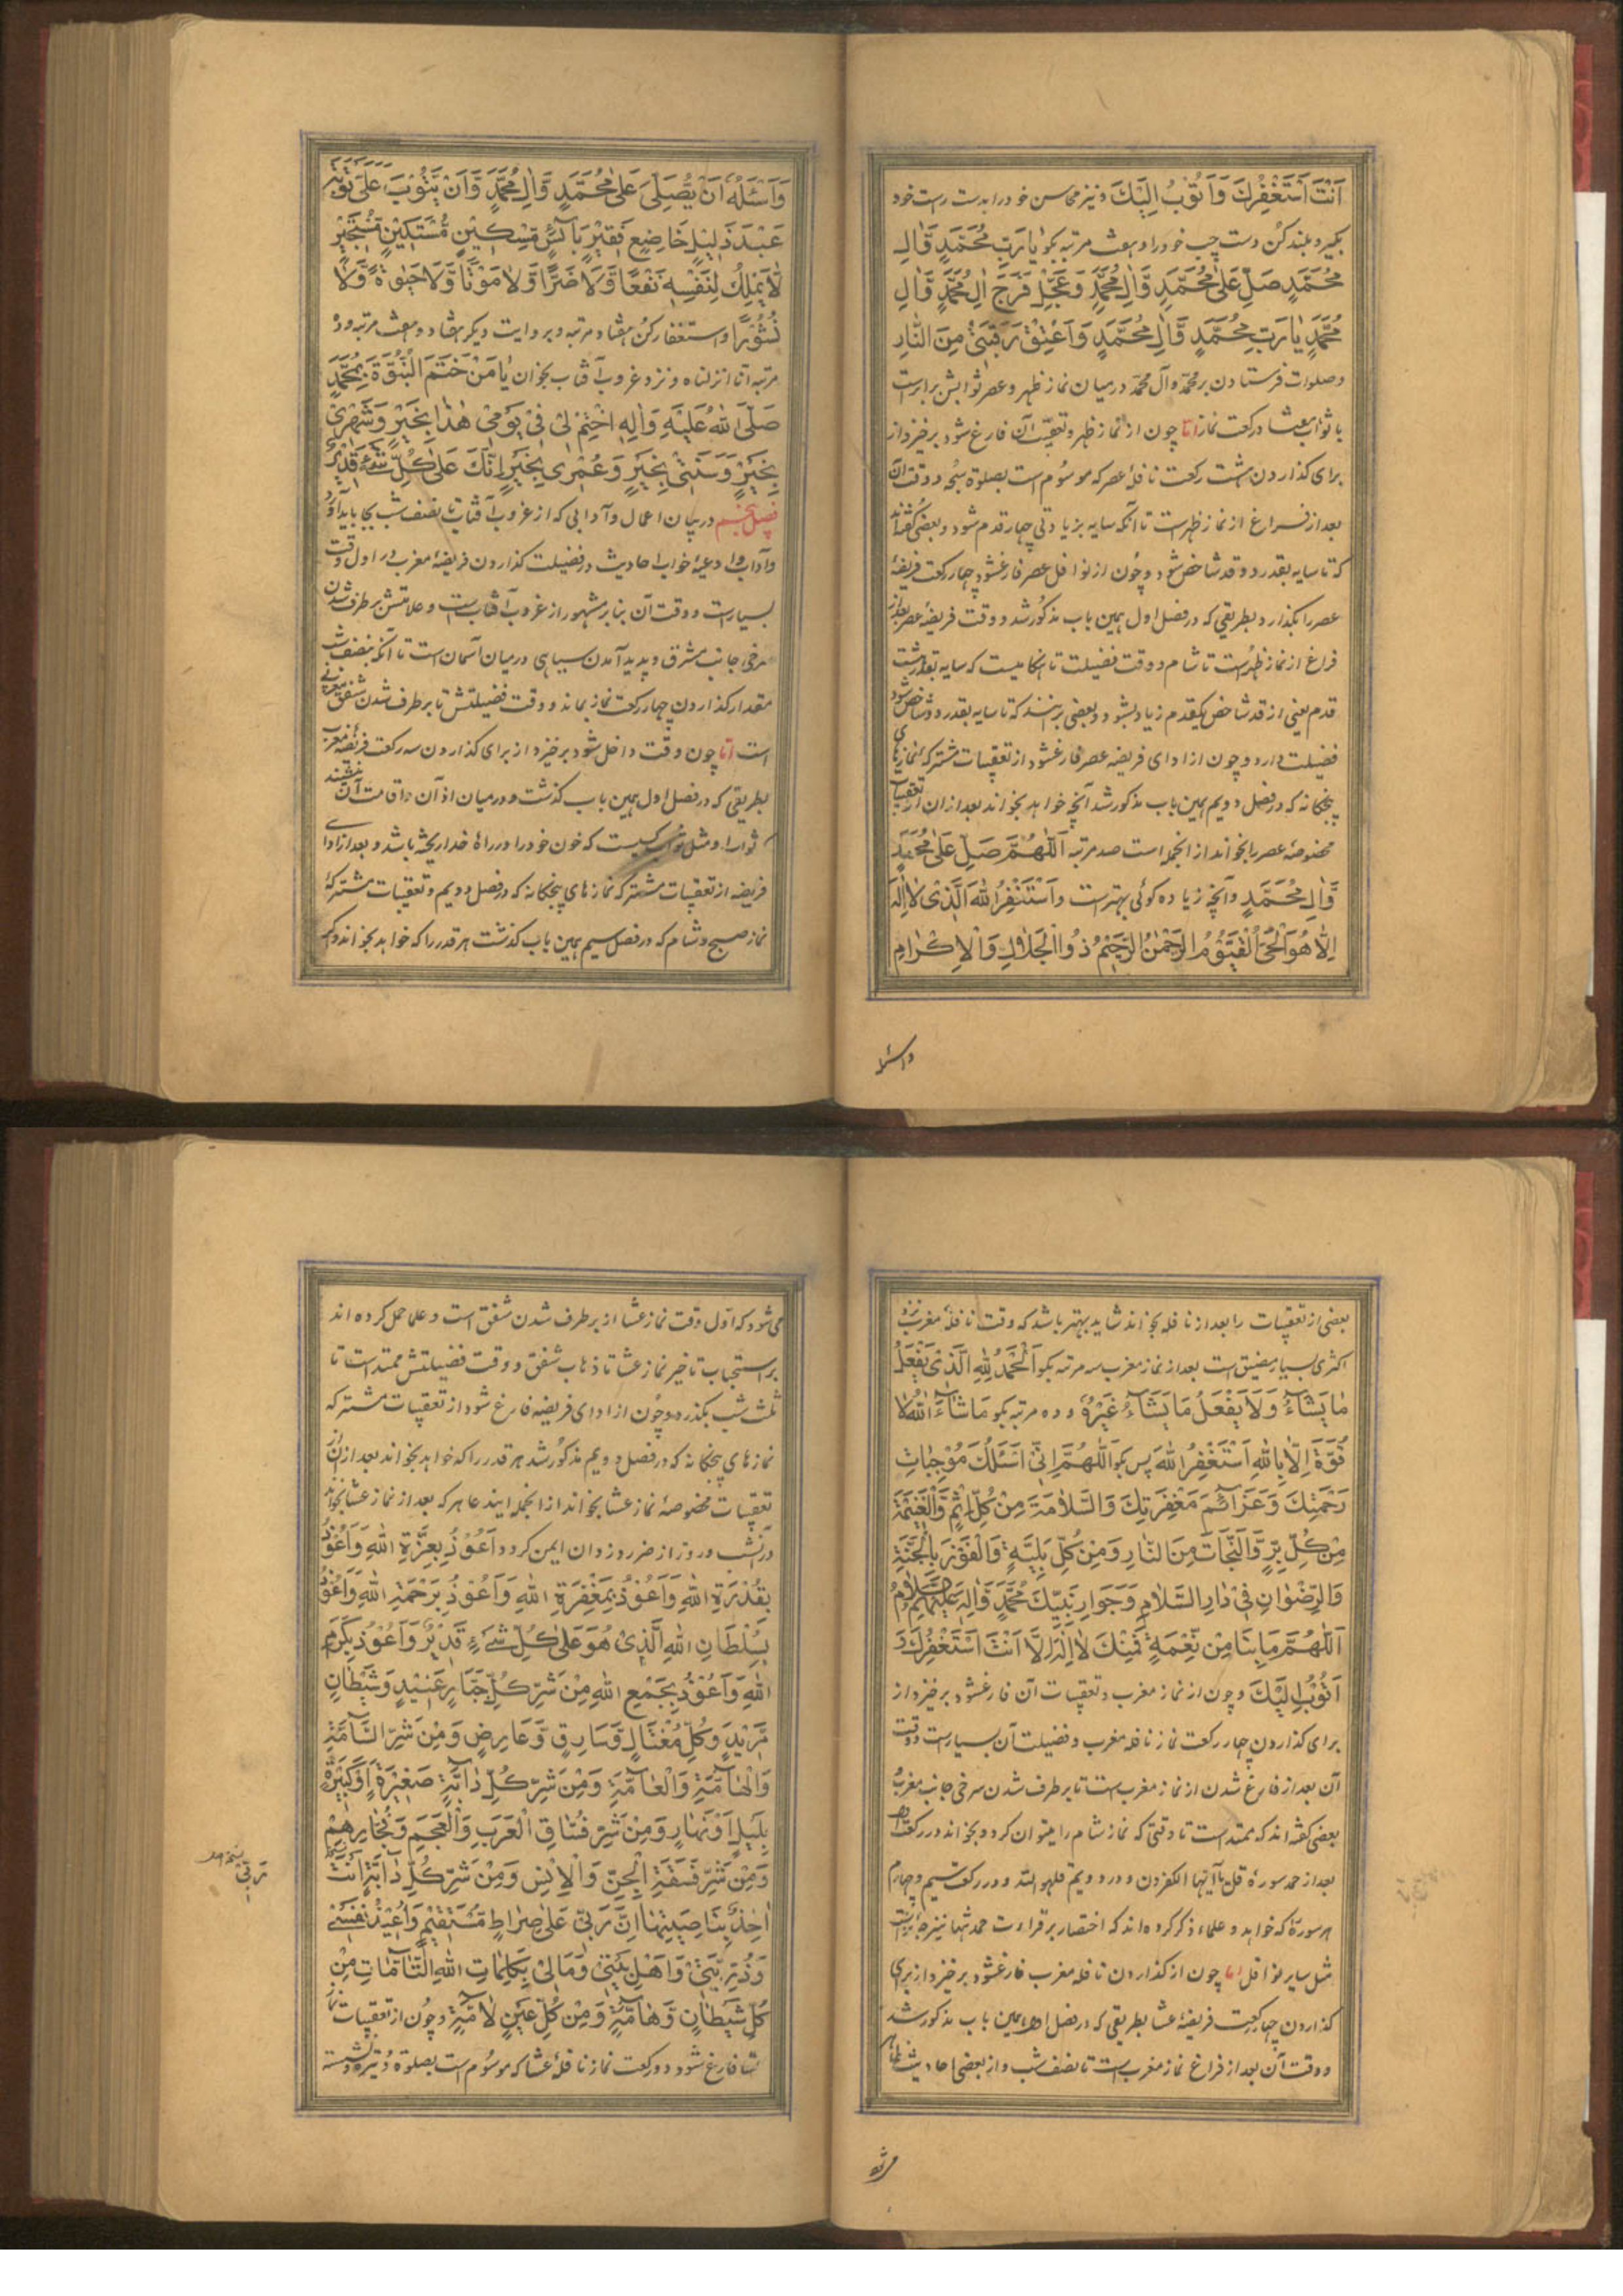 اَنْتَ اَسْتَغْفِرُكَ وَاَتُوْبُ اِلَيْكَ و نیز محاسن خود را بدست راست خود
بگیر و بلند کن دست چپ خود را و هفت مرتبه بگو يَا رَبَّ مُحَمَّدٍ وَّاٰلِ
مُحَمَّدٍ صَلِّ عَلٰى مُحَمَّدٍ وَّاٰلِ مُحَمَّدٍ وَعَجِّلْ فَرَجَ اٰلِ مُحَمَّدٍ وَّاٰلِ
مُحَمَّدٍ يَا رَبَّ مُحَمَّدٍ وَّاٰلِ مُحَمَّدٍ وَاَعْتِقْ رَقَبَتِىْ مِنَ النَّارِ
وصلوات فرستادن بر محمد وآل محمد درمیان نماز ظهر وعصر ثوابش برابرست
با ثواب هفتاد رکعت نماز اما چون از نماز ظهر وتعقیب آن فارغ شود برخیزد از
برای گذاردن هشت رکعت نافلۀ عصر که موسوم است بصلوة سبحه و وقت آن
بعد از فراغ از نماز ظهرست تا آنکه سایه بزیادتی چهار قدم شود وبعضی گفته‌اند
که تا سایه بقدر دو قد شاخص شود وچون از نوافل عصر فارغ شود چهار رکعت فریضۀ
عصر را بگذارد بطریقی که در فصل اول همین باب مذکور شد ووقت فریضۀ عصر بعد از
فراغ از نماز ظهرست تا شام ووقت فضیلت تا هنگامیست که سایه بقدر هشت
قدم یعنی از قد شاخص یکقدم زیاد بشود وبعضی برآنند که تا سایه بقدر دو شاخص شود
فضیلت دارد وچون از ادای فریضه عصر فارغ شود از تعقیبات مشترکۀ نمازهای
پنجگانه که در فصل دویم همین باب مذکور شد آنچه خواهد بخواند بعد از ان از تعقیبات
مخصوصۀ عصر بخواند از انجمله است صد مرتبه اَللّٰهُمَّ صَلِّ عَلٰى مُحَمَّدٍ
وَّاٰلِ مُحَمَّدٍ وآنچه زیاده گوئی بهترست وَاَسْتَغْفِرُ اللّٰهَ الَّذِىْ لَا اِلٰهَ
اِلَّا هُوَ الْحَىُّ الْقَيُّوْمُ الرَّحْمٰنُ الرَّحِيْمُ ذُوا الْجَلَالِ وَالْاِكْرَامِ
واسئله
وَاَسْئَلُهُ اَنْ يُّصَلِّىَ عَلٰى مُحَمَّدٍ وَّاٰلِ مُحَمَّدٍ وَّاَنْ يَّتُوْبَ عَلَىَّ تَوْبَةَ
عَبْدٍ ذَلِيْلٍ خَاضِعٍ فَقِيْرٍ بَآئِسٍ مِسْكِيْنٍ مُّسْتَكِيْنٍ مُّسْتَجِيْرٍ
لَّا يَمْلِكُ لِنَفْسِهٖ نَفْعًا وَّلَا ضَرًّا وَّلَا مَوْتًا وَّلَا حَيٰوةً وَّلَا
نُشُوْرًا واستغفار کن هفتاد مرتبه وبروایت دیگر هفتاد وهفت مرتبه وده
مرتبه انا انزلناه ونزد غروب آفتاب بخوان يَا مَنْ خَتَمَ النُّبُوَّةَ بِمُحَمَّدٍ
صَلَّى اللّٰهُ عَلَيْهِ وَاٰلِهٖ اِخْتِمْ لِىْ فِىْ يَوْمِىْ هٰذَا بِخَيْرٍ وَّشَهْرِىْ
بِخَيْرٍ وَّسَنَتِىْ بِخَيْرٍ وَعُمْرِىْ بِخَيْرٍ اِنَّكَ عَلٰى كُلِّ شَىْءٍ قَدِيْرٌ
فصل پنجم در بیان اعمال وآدابی که از غروب آفتاب تا نصف شب بجا باید آورد
وآداب وادعیۀ خواب احادیث در فضیلت گذاردن فریضۀ مغرب در اول وقت
بسیارست ووقت آن بنابر مشهور از غروب آفتاب ست وعلامتش برطرف شدن
سرخی جانب مشرق وپدید آمدن سیاهی درمیان آسمان است تا آنکه بنصف شب
مقدار گذاردن چهار رکعت نماز بماند ووقت فضیلتش تا برطرف شدن شفق مغربی
است اما چون وقت داخل شود برخیزد از برای گذاردن سه رکعت فریضۀ مغرب
بطریقی که در فصل اول همین باب گذشت ودرمیان اذان واقامت آن بنشیند
که ثواب او مثل ثواب کسیست که خون خود را در راه خدا ریخته باشد وبعد از ادای
فریضه از تعقیبات مشترکۀ نمازهای پنجگانه که در فصل دویم وتعقیبات مشترکۀ
نماز صبح وشام که در فصل سیم همین باب گذشت هر قدر را که خواهد بخواند واگر
بعضی از تعقیبات را بعد از نافله بخواند شاید بهتر باشد که وقت نافلۀ مغرب نزد
اکثری بسیار مضیق است بعد از نماز مغرب سه مرتبه بگو اَلْحَمْدُ لِلّٰهِ الَّذِىْ يَفْعَلُ
مَا يَشَآءُ وَلَا يَفْعَلُ مَا يَشَآءُ غَيْرُهٗ وده مرتبه بگو مَا شَآءَ اللّٰهُ لَا
قُوَّةَ اِلَّا بِاللّٰهِ اَسْتَغْفِرُ اللّٰهَ پس بگو اَللّٰهُمَّ اِنِّىْ اَسْئَلُكَ مُوْجِبَاتِ
رَحْمَتِكَ وَعَزَآئِمَ مَغْفِرَتِكَ وَالسَّلَامَةَ مِنْ كُلِّ اِثْمٍ وَّالْغَنِيْمَةَ
مِنْ كُلِّ بِرٍّ وَّالنَّجَاتَ مِنَ النَّارِ وَمِنْ كُلِّ بَلِيَّةٍ وَّالْفَوْزَ بِالْجَنَّةِ
وَالرِّضْوَانِ فِىْ دَارِ السَّلَامِ وَجِوَارِ نَبِيِّكَ مُحَمَّدٍ وَّاٰلِهٖ عَلَيْهِمُ السَّلَامُ
اَللّٰهُمَّ مَا بِنَا مِنْ نِعْمَةٍ فَمِنْكَ لَا اِلٰهَ اِلَّا اَنْتَ اَسْتَغْفِرُكَ وَ
اَتُوْبُ اِلَيْكَ وچون از نماز مغرب وتعقیبات آن فارغ شود برخیزد از
برای گذاردن چهار رکعت نماز نافلۀ مغرب وفضیلت آن بسیارست ووقت
آن بعد از فارغ شدن از نماز مغرب است تا برطرف شدن سرخی جانب مغرب و
بعضی گفته‌اند که ممتد است تا وقتی که نماز شام را میتوان کرد وبخواند در رکعت اول
بعد از حمد سورۀ قل یا ایها الکفرون ودر دویم قل هو الله ودر رکعت سیم وچهارم
هر سورۀ که خواهد وعلماء ذکر کرده‌اند که اختصار بر قراءت حمد تنها نیز جایزست
مثل سایر نوافل اما چون از گذاردن نافلۀ مغرب فارغ شود برخیزد از برای
گذاردن چهار رکعت فریضۀ عشا بطریقی که در فصل اول همین باب مذکور شد
ووقت آن بعد از فراغ نماز مغرب ست تا نصف شب واز بعضی احادیث ظاهر
می‌شود که اول وقت نماز عشا از برطرف شدن شفق است وعلما حمل کرده‌اند
بر استحباب تاخیر نماز عشا تا ذهاب شفق ووقت فضیلتش ممتد است تا
ثلث شب بگذرد وچون از ادای فریضه فارغ شود از تعقیبات مشترکه
نمازهای پنجگانه که در فصل دویم مذکور شد هر قدر را که خواهد بخواند بعد از ان از
تعقیبات مخصوصۀ نماز عشا بخواند از انجمله ایندعا هر که بعد از نماز عشا بخواند
در آنشب وروز از ضرر دزدان ایمن گردد اَعُوْذُ بِعِزَّةِ اللّٰهِ وَاَعُوْذُ
بِقُدْرَةِ اللّٰهِ وَاَعُوْذُ بِمَغْفِرَةِ اللّٰهِ وَاَعُوْذُ بِرَحْمَةِ اللّٰهِ وَاَعُوْذُ
بِسُلْطَانِ اللّٰهِ الَّذِىْ هُوَ عَلٰى كُلِّ شَىْءٍ قَدِيْرٌ وَاَعُوْذُ بِكَرَمِ
اللّٰهِ وَاَعُوْذُ بِجَمْعِ اللّٰهِ مِنْ شَرِّ كُلِّ جَبَّارٍ عَنِيْدٍ وَشَيْطَانٍ
مَّرِيْدٍ وَكُلِّ مُغْتَالٍ وَّسَارِقٍ وَّعَارِضٍ وَمِنْ شَرِّ السَّآمَّةِ
وَالْهَآمَّةِ وَالْعَآمَّةِ وَمِنْ شَرِّ كُلِّ دَآبَّةٍ صَغِيْرَةٍ اَوْ كَبِيْرَةٍ
بِلَيْلٍ اَوْ نَهَارٍ وَمِنْ شَرِّ فُسَّاقِ الْعَرَبِ وَالْعَجَمِ وَفُجَّارِهِمْ
وَمِنْ شَرِّ فَسَقَةِ الْجِنِّ وَالْاِنْسِ وَمِنْ شَرِّ كُلِّ دَآبَّةٍ اَنْتَ
رَبِّىْ
اٰخِذٌ بِنَاصِيَتِهَا اِنَّ رَبِّىْ عَلٰى صِرَاطٍ مُّسْتَقِيْمٍ وَاُعِيْذُ نَفْسِىْ
وَذُرِّيَّتِىْ وَاَهْلَ بَيْتِىْ وَمَالِىْ بِكَلِمَاتِ اللّٰهِ التَّآمَّاتِ مِنْ
كُلِّ شَيْطَانٍ وَّهَآمَّةٍ وَمِنْ كُلِّ عَيْنٍ لَآمَّةٍ وچون از تعقیبات نماز
عشا فارغ شود دو رکعت نماز نافلۀ عشا که موسوم است بصلوة وتیره نشسته